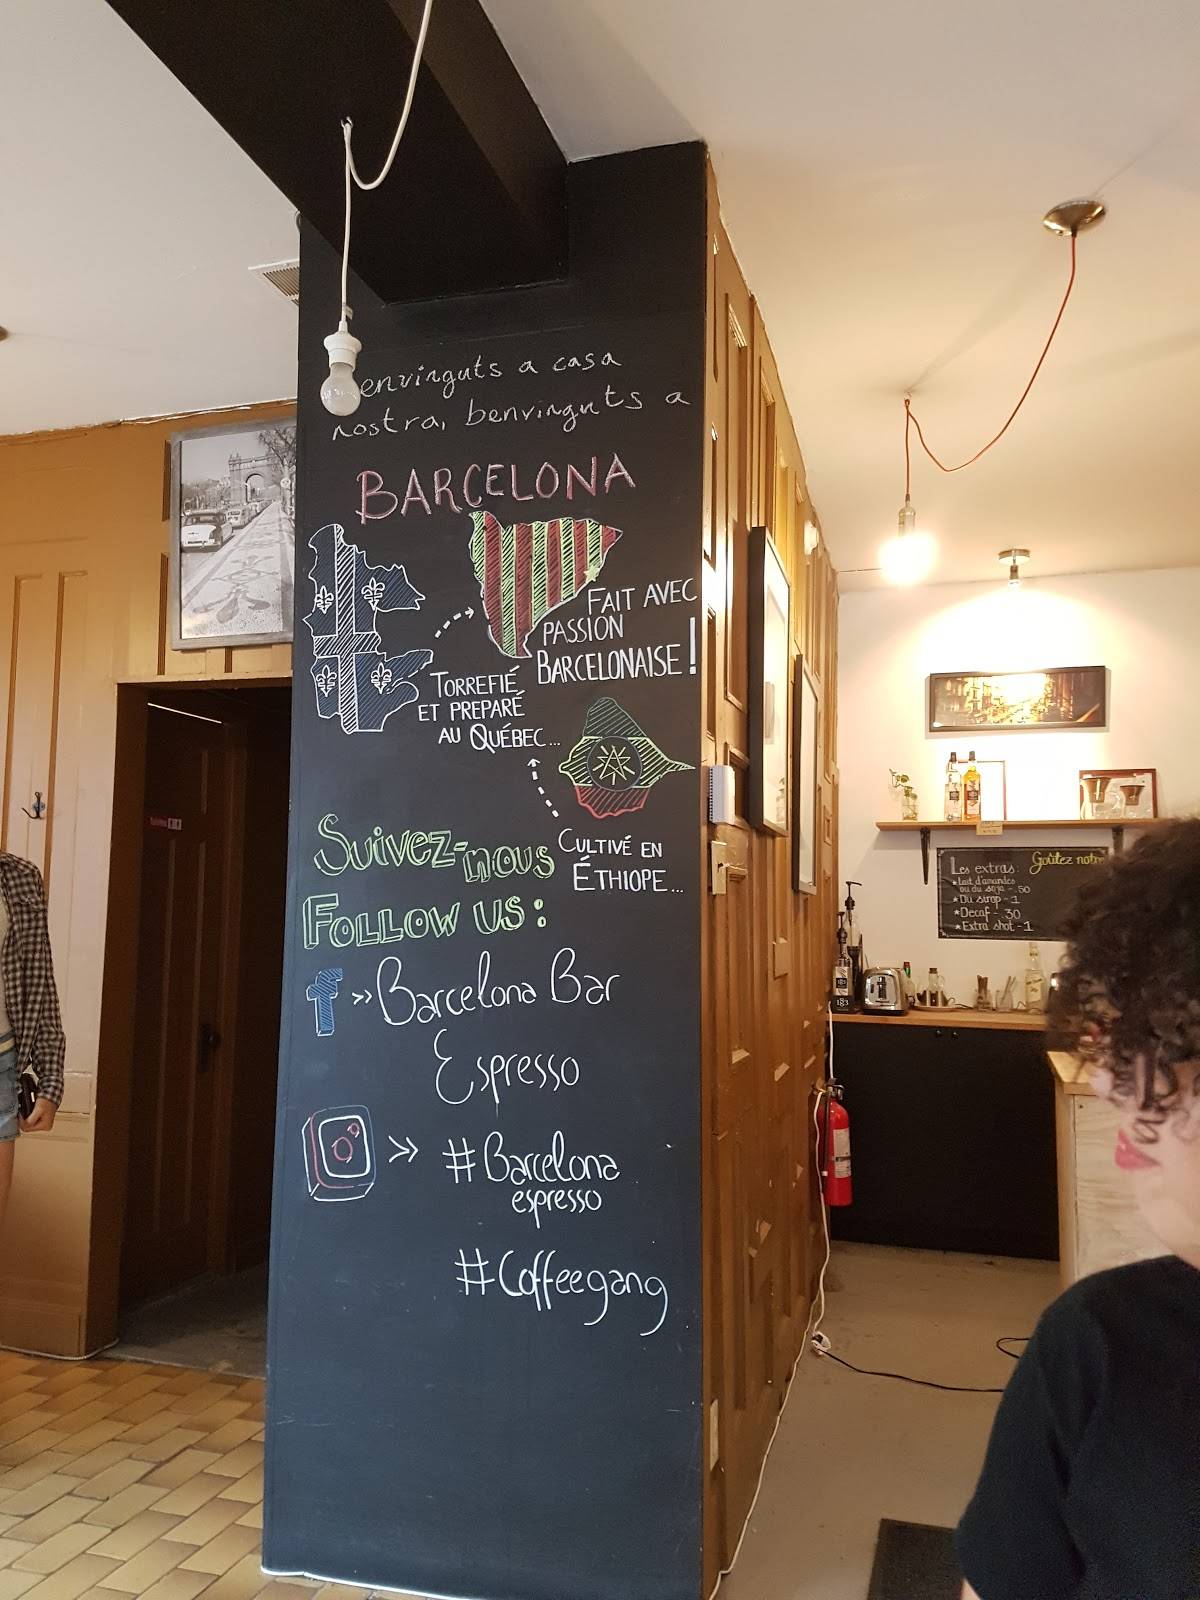 envinguts a casa
nostra, benvinguts a
BARCELONA
FAIT AVEC
PASSION
BARCELONAISE!
TORREFIÉ
ET PREPARÉ
AU QUÉBEC...
CULTIVÉ EN
ÉTHIOPE...
SUIVEZ-
NOUS
FOLLOW US:
f »Barcelona Bar
Espresso
» #Barcelona
espresso
#Coffeegang
Les extras:
Goûtez notre
*Lait d'amandes
ou du soja - .50
*Du sirop - 1
*Decaf - .30
*Extra shot - 1